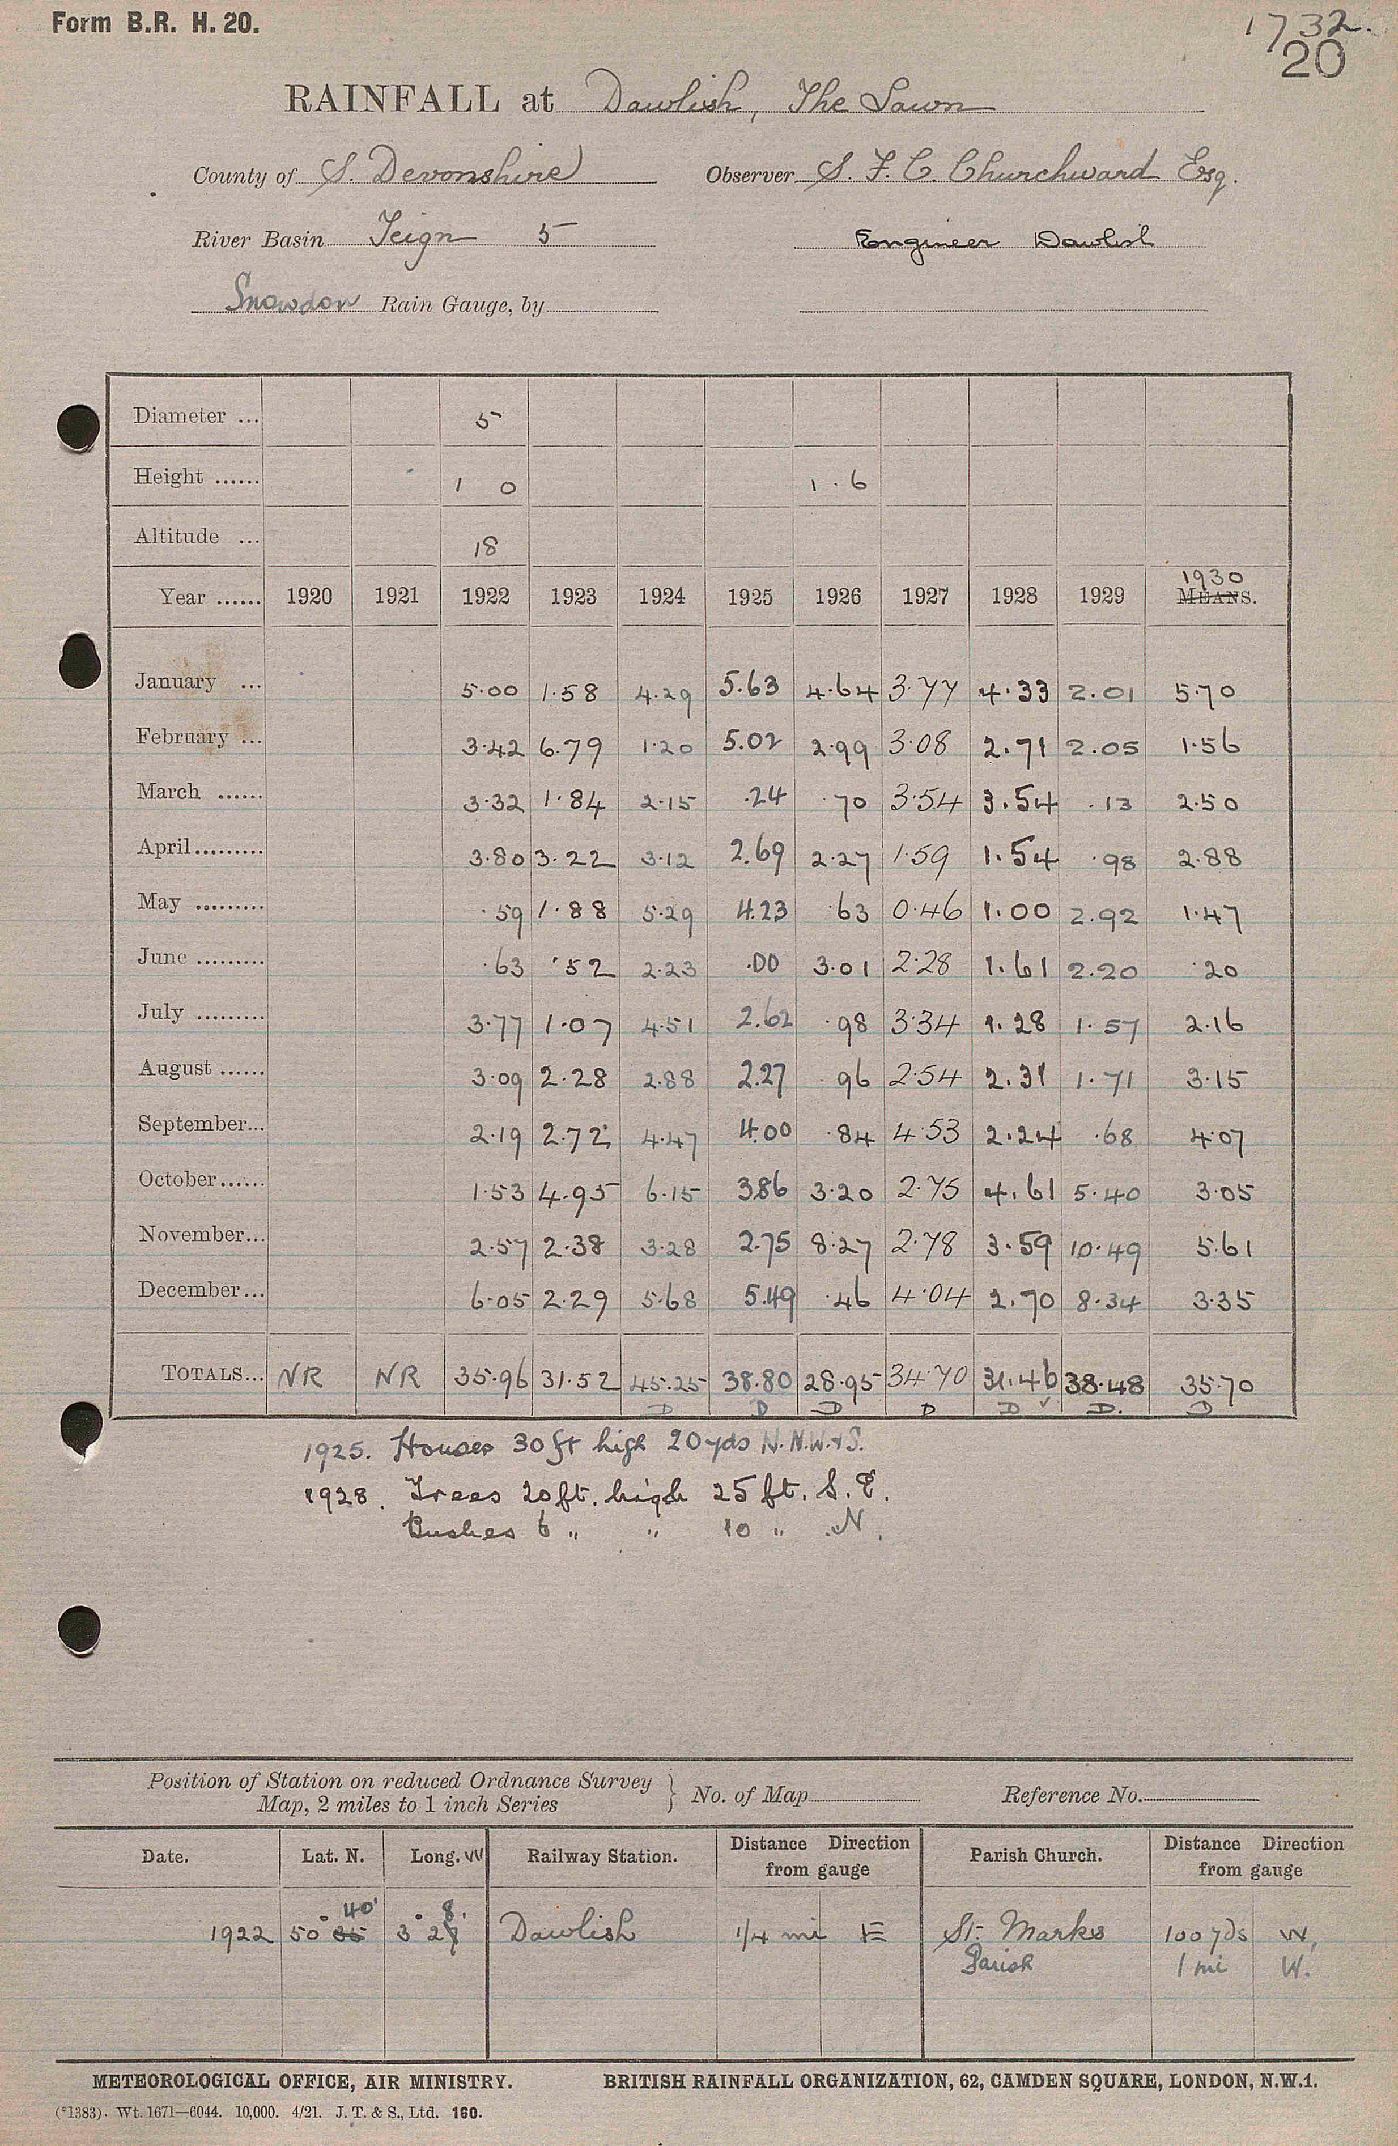 Form B.R. H. 20.
1732.
20
RAINFALL at Dawlish, The Lawn
County of S. Devonshire Observer S. F. C. Churchward Esq.
River Basin Teign 5 Engineer Dawlish
Snowdon Rain Gauge, by
Diameter ... 5
Height ...... 1 0 1.6
Altitude ... 18
1930
Year ...... 1920 1921 1922 1923 1924 1925 1926 1927 1928 1929 MEANS.
January ... 5.00 1.58 4.29 5.63 4.64 3.77 4.33 2.01 5.70
February ... 3.42 6.79 1.20 5.02 2.99 3.08 2.71 2.05 1.56
March ...... 3.32 1.84 2.15 .24 .70 3.54 3.54 .13 2.50
April......... 3.80 3.22 3.12 2.69 2.27 1.59 1.54 .98 2.88
May ......... .59 1.88 5.29 4.23 .63 0.46 1.00 2.92 1.47
June ......... .63 .52 2.23 .00 3.01 2.28 1.61 2.20 .20
July ......... 3.77 1.07 4.51 2.62 .98 3.34 1.28 1.57 2.16
August ...... 3.09 2.28 2.88 2.27 .96 2.54 2.31 1.71 3.15
September... 2.19 2.72 4.47 4.00 .84 4.53 2.24 .68 4.07
October...... 1.53 4.95 6.15 3.86 3.20 2.75 4.61 5.40 3.05
November... 2.57 2.38 3.28 2.75 8.27 2.78 3.59 10.49 5.61
December... 6.05 2.29 5.68 5.49 .46 4.04 2.70 8.34 3.35
TOTALS... NR NR 35.96 31.52 45.25 38.80 28.95 34.70 31.46 38.48 35.70
D D D D D ✓ D. D
1925. Houses 30 ft high 20 yds N. N.W. & S.
1928. Trees 20 ft. high 25 ft. S.E.
Bushes 6 " " 10 " N.
Position of Station on reduced Ordnance Survey
Map, 2 miles to 1 inch Series } No. of Map Reference No.
Date. Lat. N. Long. W Railway Station. Distance Direction from gauge Parish Church. Distance Direction from gauge
40' 8'
1922 50° 35 3° 27 Dawlish 1/4 mi E St. Marks 100 yds W.
Parish 1 mi W.
METEOROLOGICAL OFFICE, AIR MINISTRY. BRITISH RAINFALL ORGANIZATION, 62, CAMDEN SQUARE, LONDON, N.W.1.
(*1383). Wt. 1671—6044. 10,000. 4/21. J. T. & S., Ltd. 160.